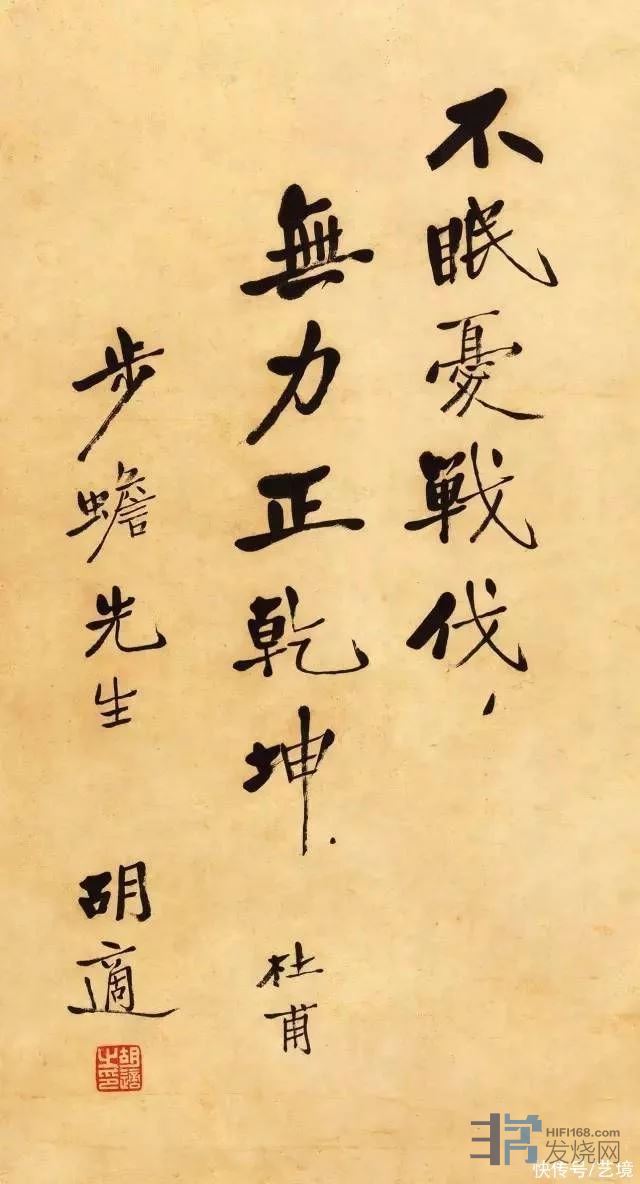 不眠憂戰伐，
無力正乾坤.
杜甫
步蟾先生
胡適
胡適之印
HIFI168.com
发烧网
快传号/艺境